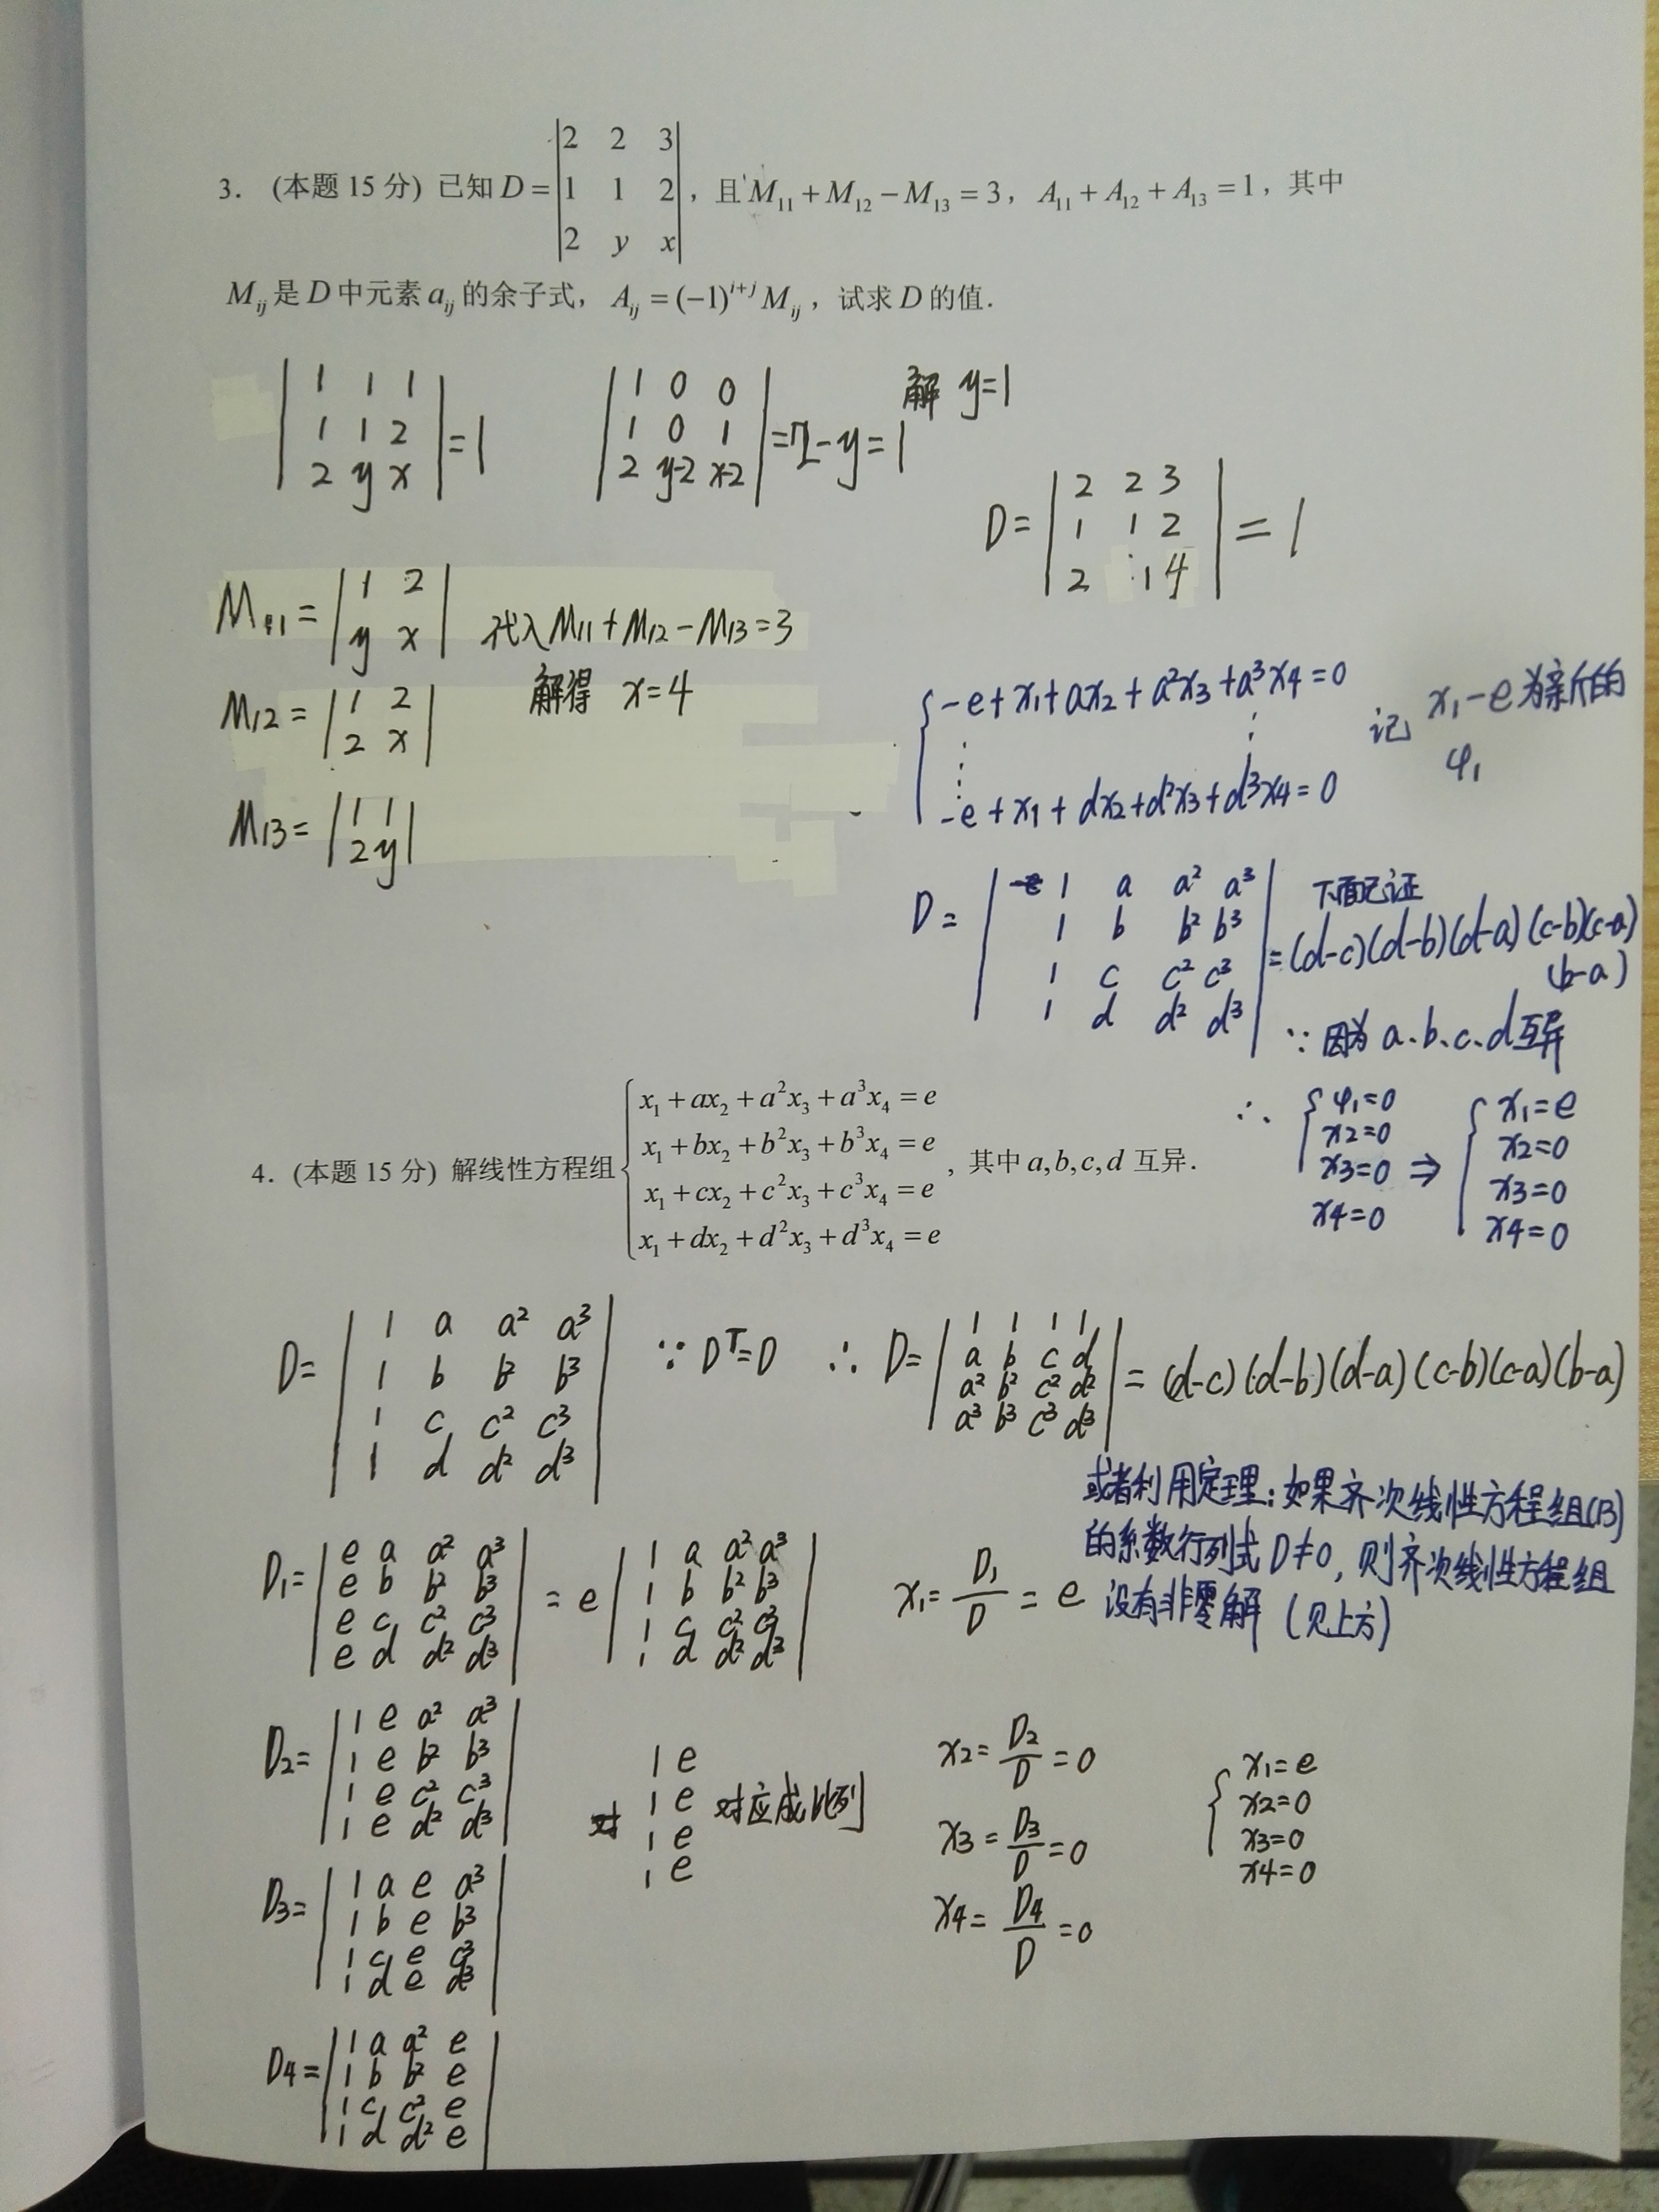 3. (本题 15 分) 已知 D = |2 2 3; 1 1 2; 2 y x|, 且 M₁₁ + M₁₂ − M₁₃ = 3, A₁₁ + A₁₂ + A₁₃ = 1, 其中
M_ij 是 D 中元素 a_ij 的余子式, A_ij = (−1)^(i+j) M_ij, 试求 D 的值.
|1 1 1; 1 1 2; 2 y x| = 1
|1 0 0; 1 0 1; 2 y-2 x-2| = 2-y = 1
解 y=1
D = |2 2 3; 1 1 2; 2 1 4| = 1
M₁₁ = |1 2; y x|
代入 M₁₁ + M₁₂ − M₁₃ = 3
解得 x=4
M₁₂ = |1 2; 2 x|
M₁₃ = |1 1; 2 y|
{ -e + x₁ + ax₂ + a²x₃ + a³x₄ = 0
⋮ ⋮
-e + x₁ + dx₂ + d²x₃ + d³x₄ = 0
记 x₁-e 为新的
φ₁
D = |1 a a² a³; 1 b b² b³; 1 c c² c³; 1 d d² d³|
下面已证
= (d-c)(d-b)(d-a)(c-b)(c-a)
(b-a)
∵ 因为 a、b、c、d 互异
∴ { φ₁=0 x₂=0 x₃=0 x₄=0 ⇒ { x₁=e x₂=0 x₃=0 x₄=0
4. (本题 15 分) 解线性方程组 { x₁ + ax₂ + a²x₃ + a³x₄ = e
x₁ + bx₂ + b²x₃ + b³x₄ = e
x₁ + cx₂ + c²x₃ + c³x₄ = e
x₁ + dx₂ + d²x₃ + d³x₄ = e
, 其中 a,b,c,d 互异.
D = |1 a a² a³; 1 b b² b³; 1 c c² c³; 1 d d² d³| ∵ Dᵀ=D ∴ D = |1 1 1 1; a b c d; a² b² c² d²; a³ b³ c³ d³| = (d-c)(d-b)(d-a)(c-b)(c-a)(b-a)
或者利用定理: 如果齐次线性方程组(13)
的系数行列式 D≠0, 则齐次线性方程组
没有非零解 (见上方)
D₁ = |e a a² a³; e b b² b³; e c c² c³; e d d² d³| = e |1 a a² a³; 1 b b² b³; 1 c c² c³; 1 d d² d³|
x₁ = D₁/D = e
D₂ = |1 e a² a³; 1 e b² b³; 1 e c² c³; 1 e d² d³|
对 1 e 1 e 1 e 1 e 对应成比例
x₂ = D₂/D = 0
x₃ = D₃/D = 0
x₄ = D₄/D = 0
{ x₁=e x₂=0 x₃=0 x₄=0
D₃ = |1 a e a³; 1 b e b³; 1 c e c³; 1 d e d³|
D₄ = |1 a a² e; 1 b b² e; 1 c c² e; 1 d d² e|